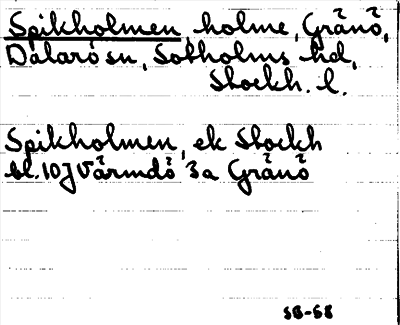 Spikholmen, holme, Gränö,
Dalarö sn, Sotholms hd,
Stockh. l.
Spikholmen, ek Stockh
bl. 10J Värmdö 3a Gränö
SB-68